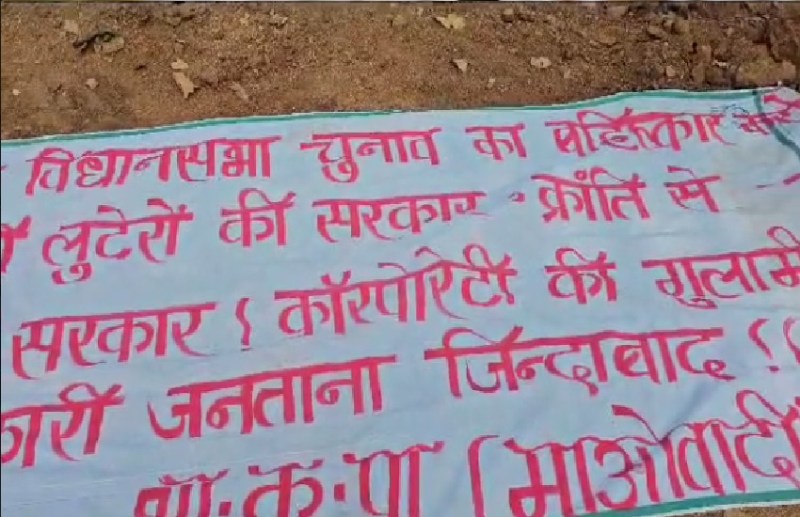 विधानसभा चुनाव का बहिष्कार
लुटेरों की सरकार क्रांति से
सरकार! कॉरपोरेटी की गुलामी
कारी जनताना जिन्दाबाद!!
भा.क.पा (माओवादी)